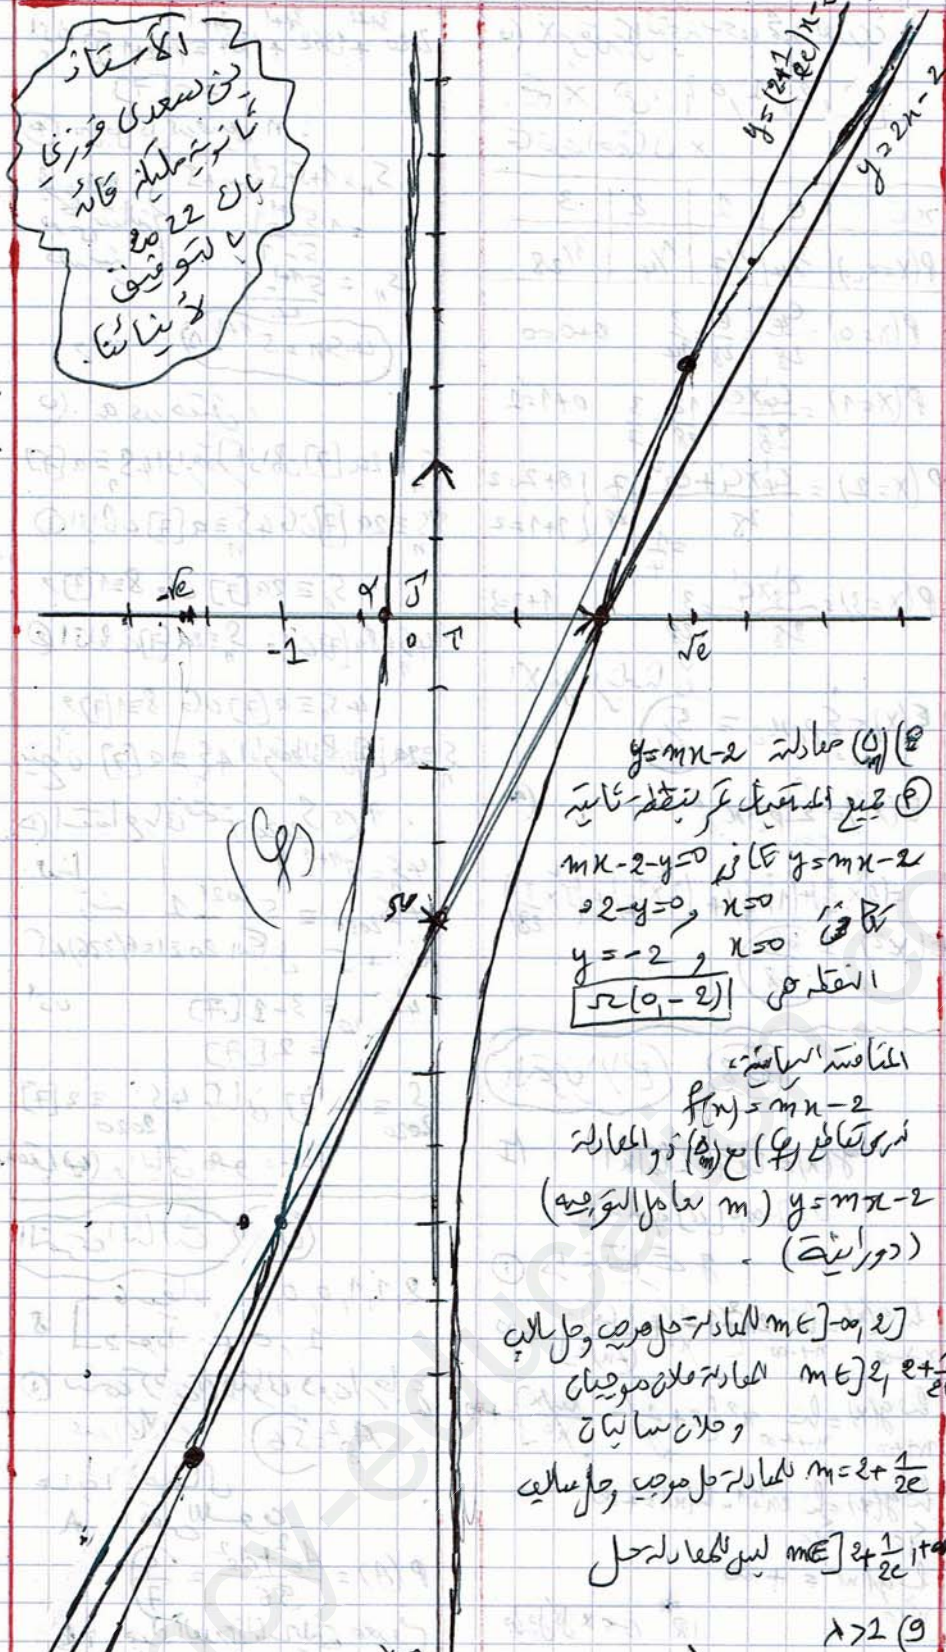 الأستاذ
بن سعدي فوزي
ثانوية مليكة قائد
باك 2022
بالتوفيق
لأبنائنا.
y=(2+1/2e)x-2
y=2x-2
-√e
-1
α
0
√e
Ω
(Cf)
8) (Δm) معادلته y=mx-2
P جميع المستقيمات تمر بنقطة ثابتة
y=mx-2 تكافئ mx-2-y=0
تكافئ x=0 و -2-y=0
x=0 و y=-2
النقطة هي Ω(0,-2)
المناقشة البيانية:
f(x)=mx-2
ندرس تقاطع (Cf) مع (Δm) ذو المعادلة
y=mx-2 (m معامل التوجيه)
(دورانية).
m∈]-∞,2] للمعادلة حل موجب وحل سالب
m∈]2, 2+1/2e للمعادلة حلان موجبان
وحلان سالبان
m=2+1/2e للمعادلة حل موجب وحل سالب
m∈]2+1/2e,+∞ ليس للمعادلة حل
9) λ>1